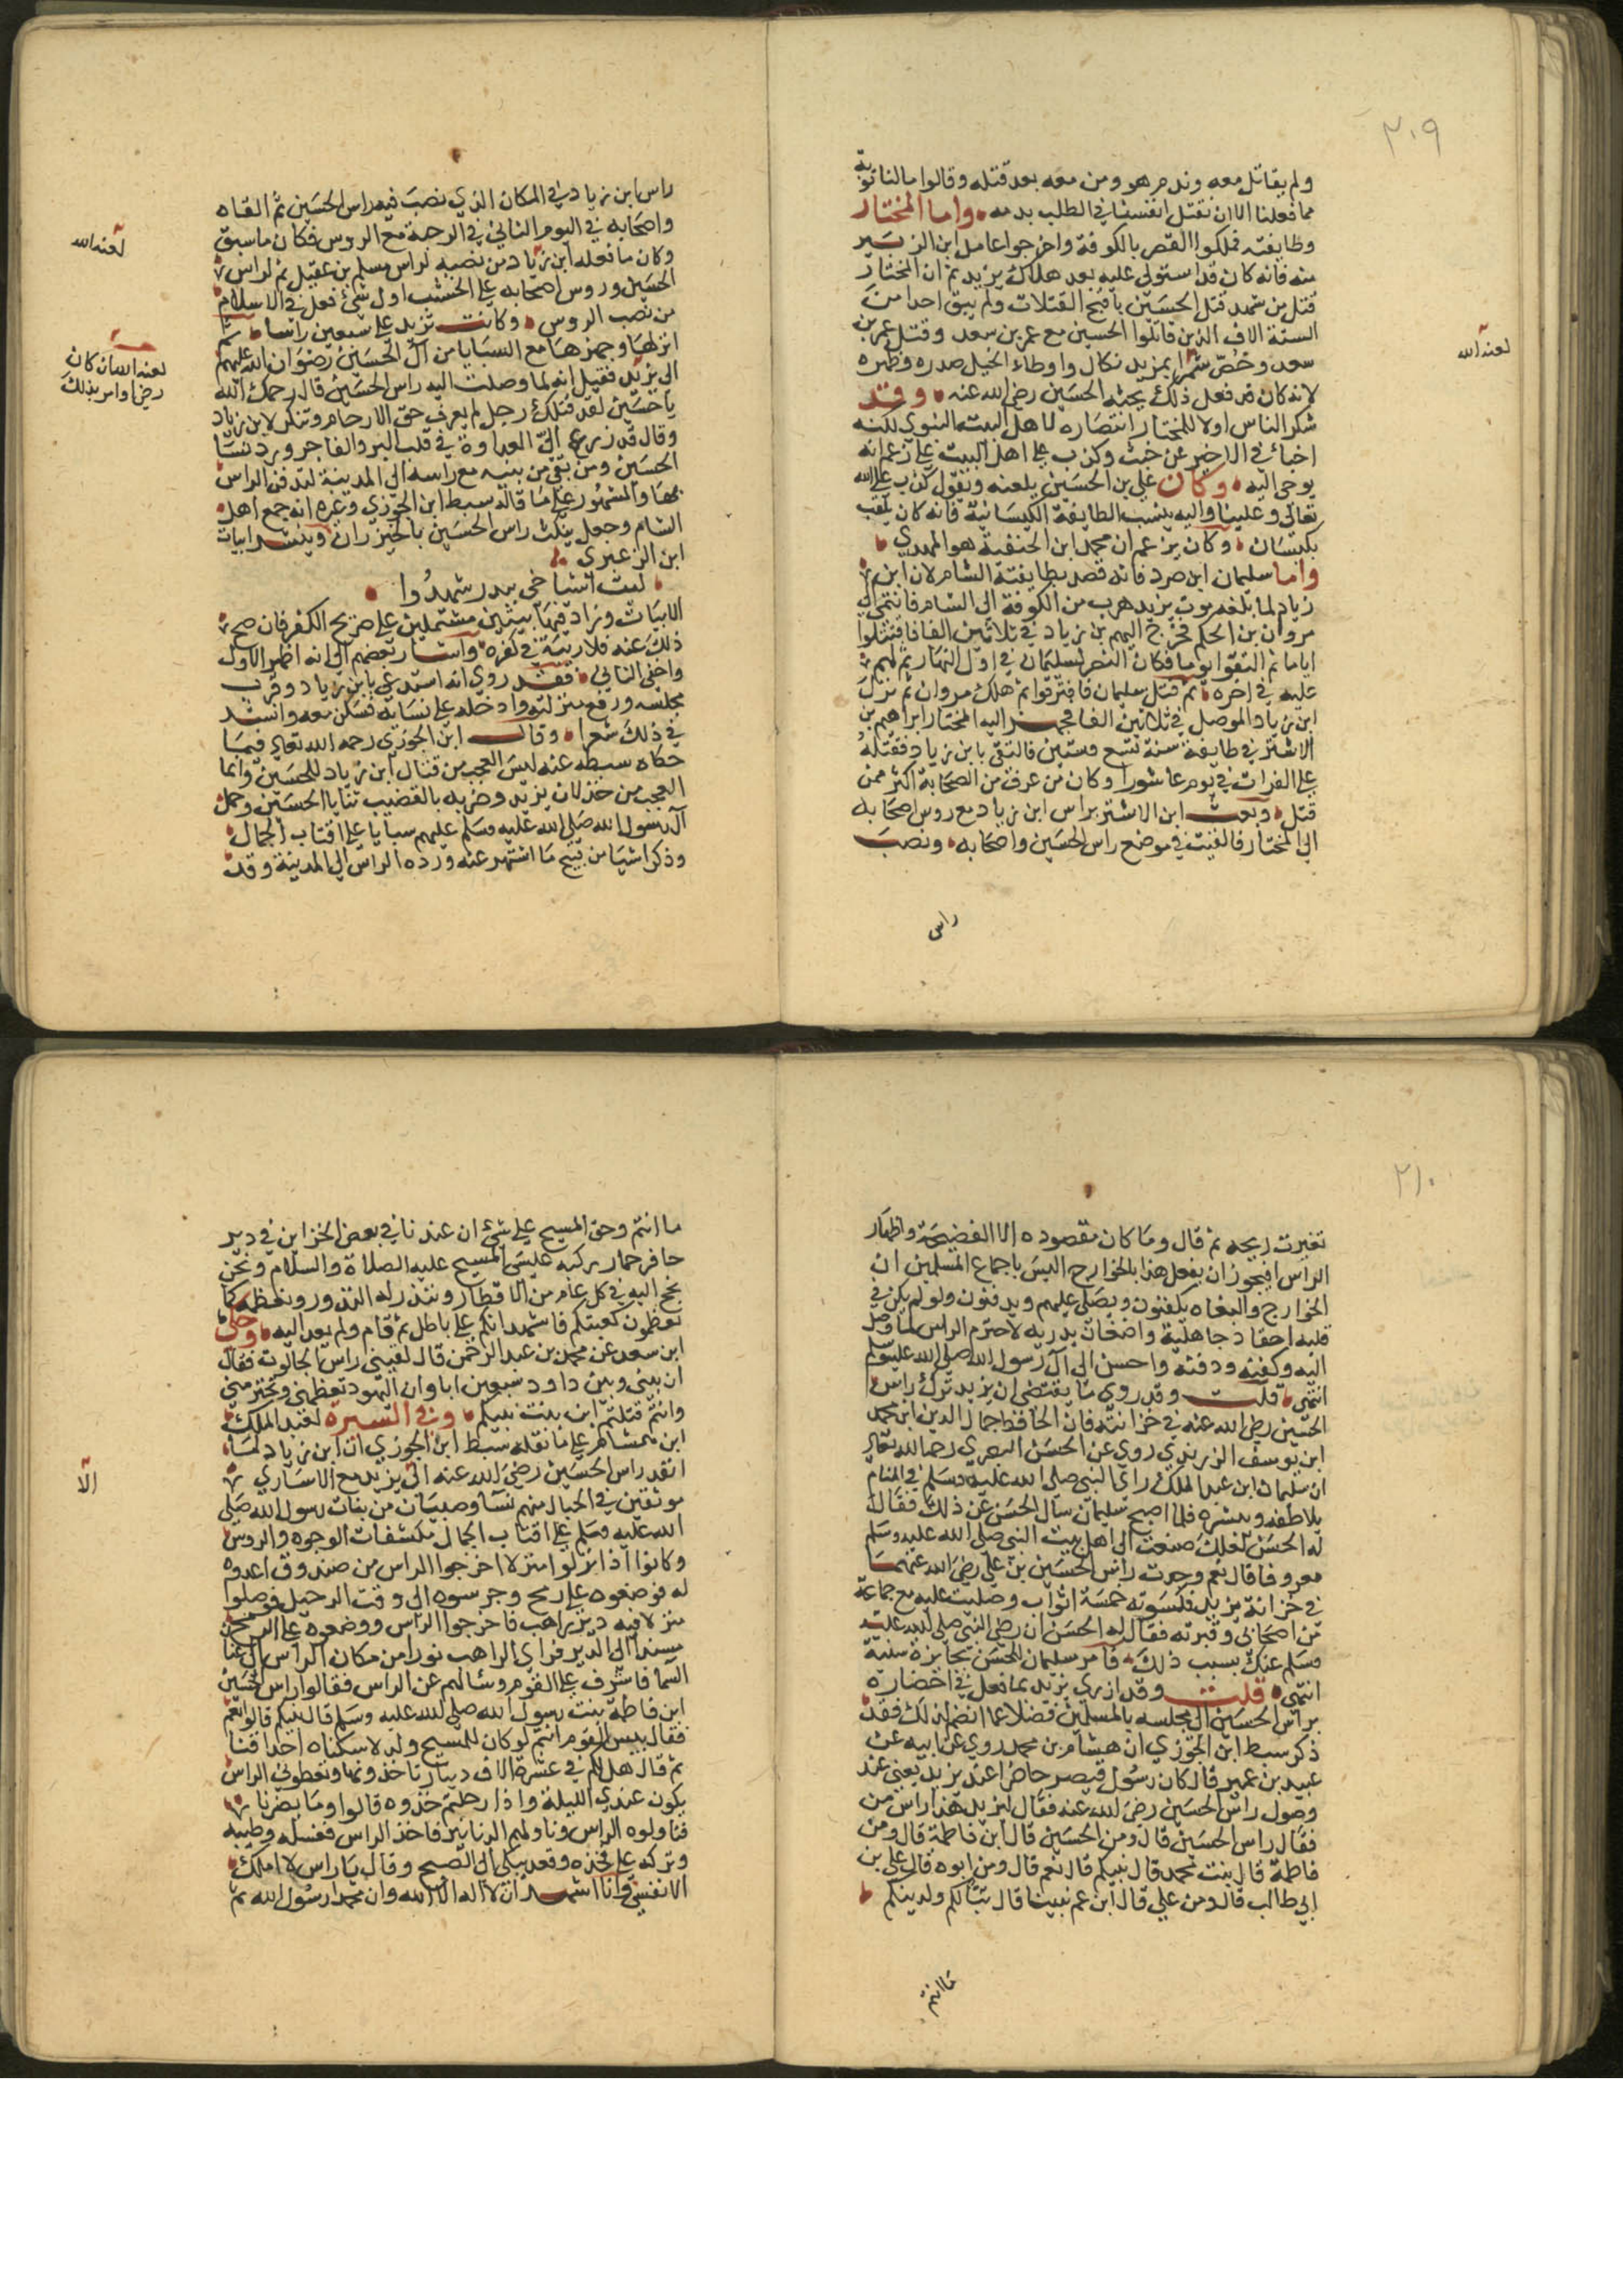 ٢٠٩
ولم يقاتل معه وندم هو ومن معه بعد قتله وقالوا مالنا توبة
مما فعلنا الا ان نقتل انفسنا في الطلب بدمه واما المختار
وطايفته فملكوا القصر بالكوفة واخرجوا عامل ابن الزبير
منه فانه كان قد استولى عليه بعد هلاك يزيد ثم ان المختار
قتل من شهد قتل الحسين باقبح القتلات ولم يبق احدا من
الستة الاف الذين قاتلوا الحسين مع عمر بن سعد وقتل عمر بن
سعد وخص شمرا بمزيد نكال واوطاء الخيل صدره وظهره
لعنه الله
لانه كان قد فعل ذلك بجثة الحسين رضي الله عنه وقد
شكر الناس اولا للمختار انتصاره لاهل البيت النبوي لكنه
اخبا في الاخير عن خبث وكذب على اهل البيت على زعم انه
يوحى اليه وكان علي بن الحسين يلعنه ويقول كذب على الله
تعالى وعلينا واليه ينسب الطايفة الكيسانية فانه كان يلقب
بكيسان وكان يزعم ان محمد ابن الحنفية هو المهدي
واما سليمان ابن صرد فانه قصد بطايفته الشام لان ابن
زياد لما بلغه موت يزيد هرب من الكوفة الى الشام فانتمى الى
مروان بن الحكم فخرج اليهم بن زياد في ثلاثين الفا فاقتتلوا
اياما ثم التقوا يوما فكان النصر لسليمان في اول النهار ثم لهم
عليه في اخره ثم قتل سليمان فافترقوا ثم هلك مروان ثم نزل
ابن زياد الموصل في ثلاثين الفا فجهز اليه المختار ابراهيم بن
الاشتر في طايفة سنة تسع وستين فالتقى بابن زياد فقتله
على الفرات في يوم عاشورا وكان من غرق من الصحابة اكثر ممن
قتل وبعث ابن الاشتر براس ابن زياد مع روس اصحابه
الى المختار فالقيت في موضع راس الحسين واصحابه ونصب
راس
راس ابن زياد في المكان الذي نصب فيه راس الحسين ثم القاه
واصحابه في اليوم الثاني في الرحبة مع الروس فكان ما سبق
لعنه الله
وكان ما فعله ابن زياد من نصبه لراس مسلم بن عقيل ثم لراس
الحسين وروس اصحابه على الخشب اول شئ فعل في الاسلام
من نصب الروس وكانت تزيد على سبعين راسا ثم
انزلها وجهزها مع السبايا من ال الحسين رضوان الله عليهم
الى يزيد فقيل انه لما وصلت اليه راس الحسين قال رحمك الله
لعنه الله ان كان
رضي او امر بذلك
يا حسين لقد قتلك رجل لم يعرف حق الارحام وتنكر لابن زياد
وقال قد زرع الي العداوة في قلب البر والفاجر ورد نسا
الحسين ومن بقي من بنيه مع راسه الى المدينة لتدفن الراس
بها والمشهور على ما قاله سبط ابن الجوزي وغيره انه جمع اهل
الشام وجعل ينكث راس الحسين بالخيزران وينشد ابيات
ابن الزعبري
ليت اشياخي ببدر شهدوا
الابيات وزاد فيها بيتين مشتملين على صريح الكفر فان صح
ذلك عنه فلا ريبة في كفره واشار بعضهم الى انه اظهر الاول
واخفى الثاني فقد روي انه استدعى بابن زياد وقرب
مجلسه ورفع منزلته وادخله على نسائه فسكن معه وانشد
في ذلك شعرا وقال ابن الجوزي رحمه الله تعالى فيما
حكاه سبطه عنه ليس العجب من قتال ابن زياد للحسين وانما
العجب من خذلان يزيد وضربه بالقضيب ثنايا الحسين وحمل
آل رسول الله صلى الله عليه وسلم عليهم سبايا على اقتاب الجمال
وذكر اشيا من قبيح ما اشتهر عنه ورده الراس الى المدينة وقد
٢١٠
تغيرت ريحه ثم قال وما كان مقصوده الا الفضيحة واظهار
الراس افيجوز ان يفعل هذا بالخوارج اليس باجماع المسلمين ان
الخوارج والبغاه يكفنون ويصلى عليهم ويدفنون ولو لم يكن في
قلبه احقاد جاهلية واضغان بدريه لاحترم الراس لما وصل
اليه وكفنه ودفنه واحسن الى آل رسول الله صلى الله عليه وسلم
انتهى قلت وقد روي ما يقتضي ان يزيد ترك راس
الحسين رضي الله عنه في خزانته فان الحافظ جمال الدين ابن محمد
ابن يوسف الزرندي روى عن الحسن البصري رحمه الله تعالى
ان سليمان ابن عبد الملك راى النبي صلى الله عليه وسلم في المنام
يلاطفه ويبشره فلما اصبح سليمان سال الحسن عن ذلك فقال
له الحسن لعلك صنعت الى اهل بيت النبي صلى الله عليه وسلم
معروفا قال نعم وجدت راس الحسين بن علي رضي الله عنهما
في خزانة يزيد فكسوته خمسة اثواب وصليت عليه مع جماعة
من اصحابي وقبرته فقال له الحسن ان رضى النبي صلى الله عليه
وسلم عنك بسبب ذلك فامر سليمان للحسن بجايزة سنية
انتهى قلت وقد ازري يزيد بما فعل في احضاره
براس الحسين الى مجلسه بالمسلمين فضلا عما انضم لذلك فقد
ذكر سبط ابن الجوزي ان هشام بن محمد روى عن ابيه عن
عبيد بن عمير قال كان رسول قيصر حاضرا عند يزيد يعني عند
وصول راس الحسين رضي الله عنه فقال ليزيد هذا راس من
فقال راس الحسين قال ومن الحسين قال ابن فاطمة قال ومن
فاطمة قال بنت محمد قال نبيكم قال نعم قال ومن ابوه قال علي بن
ابي طالب قال ومن علي قال ابن عم نبينا قال تبا لكم ولدينكم
ما انتم
ما انتم وحق المسيح على شئ ان عندنا في بعض الخزاين في دير
حافر حمار ركبه عيسى المسيح عليه الصلاة والسلام ونحن
نحج اليه في كل عام من الاقطار وننذر له النذور ونعظمه كما
تعظمون كعبتكم فاشهد انكم على باطل ثم قام ولم يعد اليه وحكى
ابن سعد عن محمد بن عبد الرحمن قال لقيني راس الجالوت فقال
ان بيني وبين داود سبعين ابا وان اليهود تعظمني وتحترمني
وانتم قتلتم ابن بنت نبيكم وفي السيرة لعبد الملك
ابن هشام على ما نقله سبط ابن الجوزي ان ابن زياد لما
انفذ راس الحسين رضي الله عنه الى يزيد مع الاسارى
الا
موثقين في الحبال منهم نسآ وصبيان من بنات رسول الله صلى
الله عليه وسلم على اقتاب الجمال مكشفات الوجوه والروس
وكانوا اذا نزلوا منزلا اخرجوا الراس من صندوق اعدوه
له فوضعوه على رمح وحرسوه الى وقت الرحيل فوصلوا
منزلا فيه دير راهب فاخرجوا الراس ووضعوه على الرمح
مسندا الى الدير فراى الراهب نورا من مكان الراس الى عنان
السما فاشرف على القوم وسالهم عن الراس فقالوا راس الحسين
ابن فاطمة بنت رسول الله صلى الله عليه وسلم قال نبيكم قالوا نعم
فقال بيس القوم انتم لو كان للمسيح ولد لاسكناه احداقنا
ثم قال هل لكم في عشرة الاف دينار تاخذونها وتعطوني الراس
يكون عندي الليلة واذا رحلتم خذوه قالوا وما يضرنا
فناولوه الراس وناولهم الدنانير فاخذ الراس فغسله وطيبه
وتركه على فخذه وقعد يبكي الى الصبح وقال يا راس لا املك
الا نفسي وانا اشهد ان لا اله الا الله وان محمدا رسول الله ثم